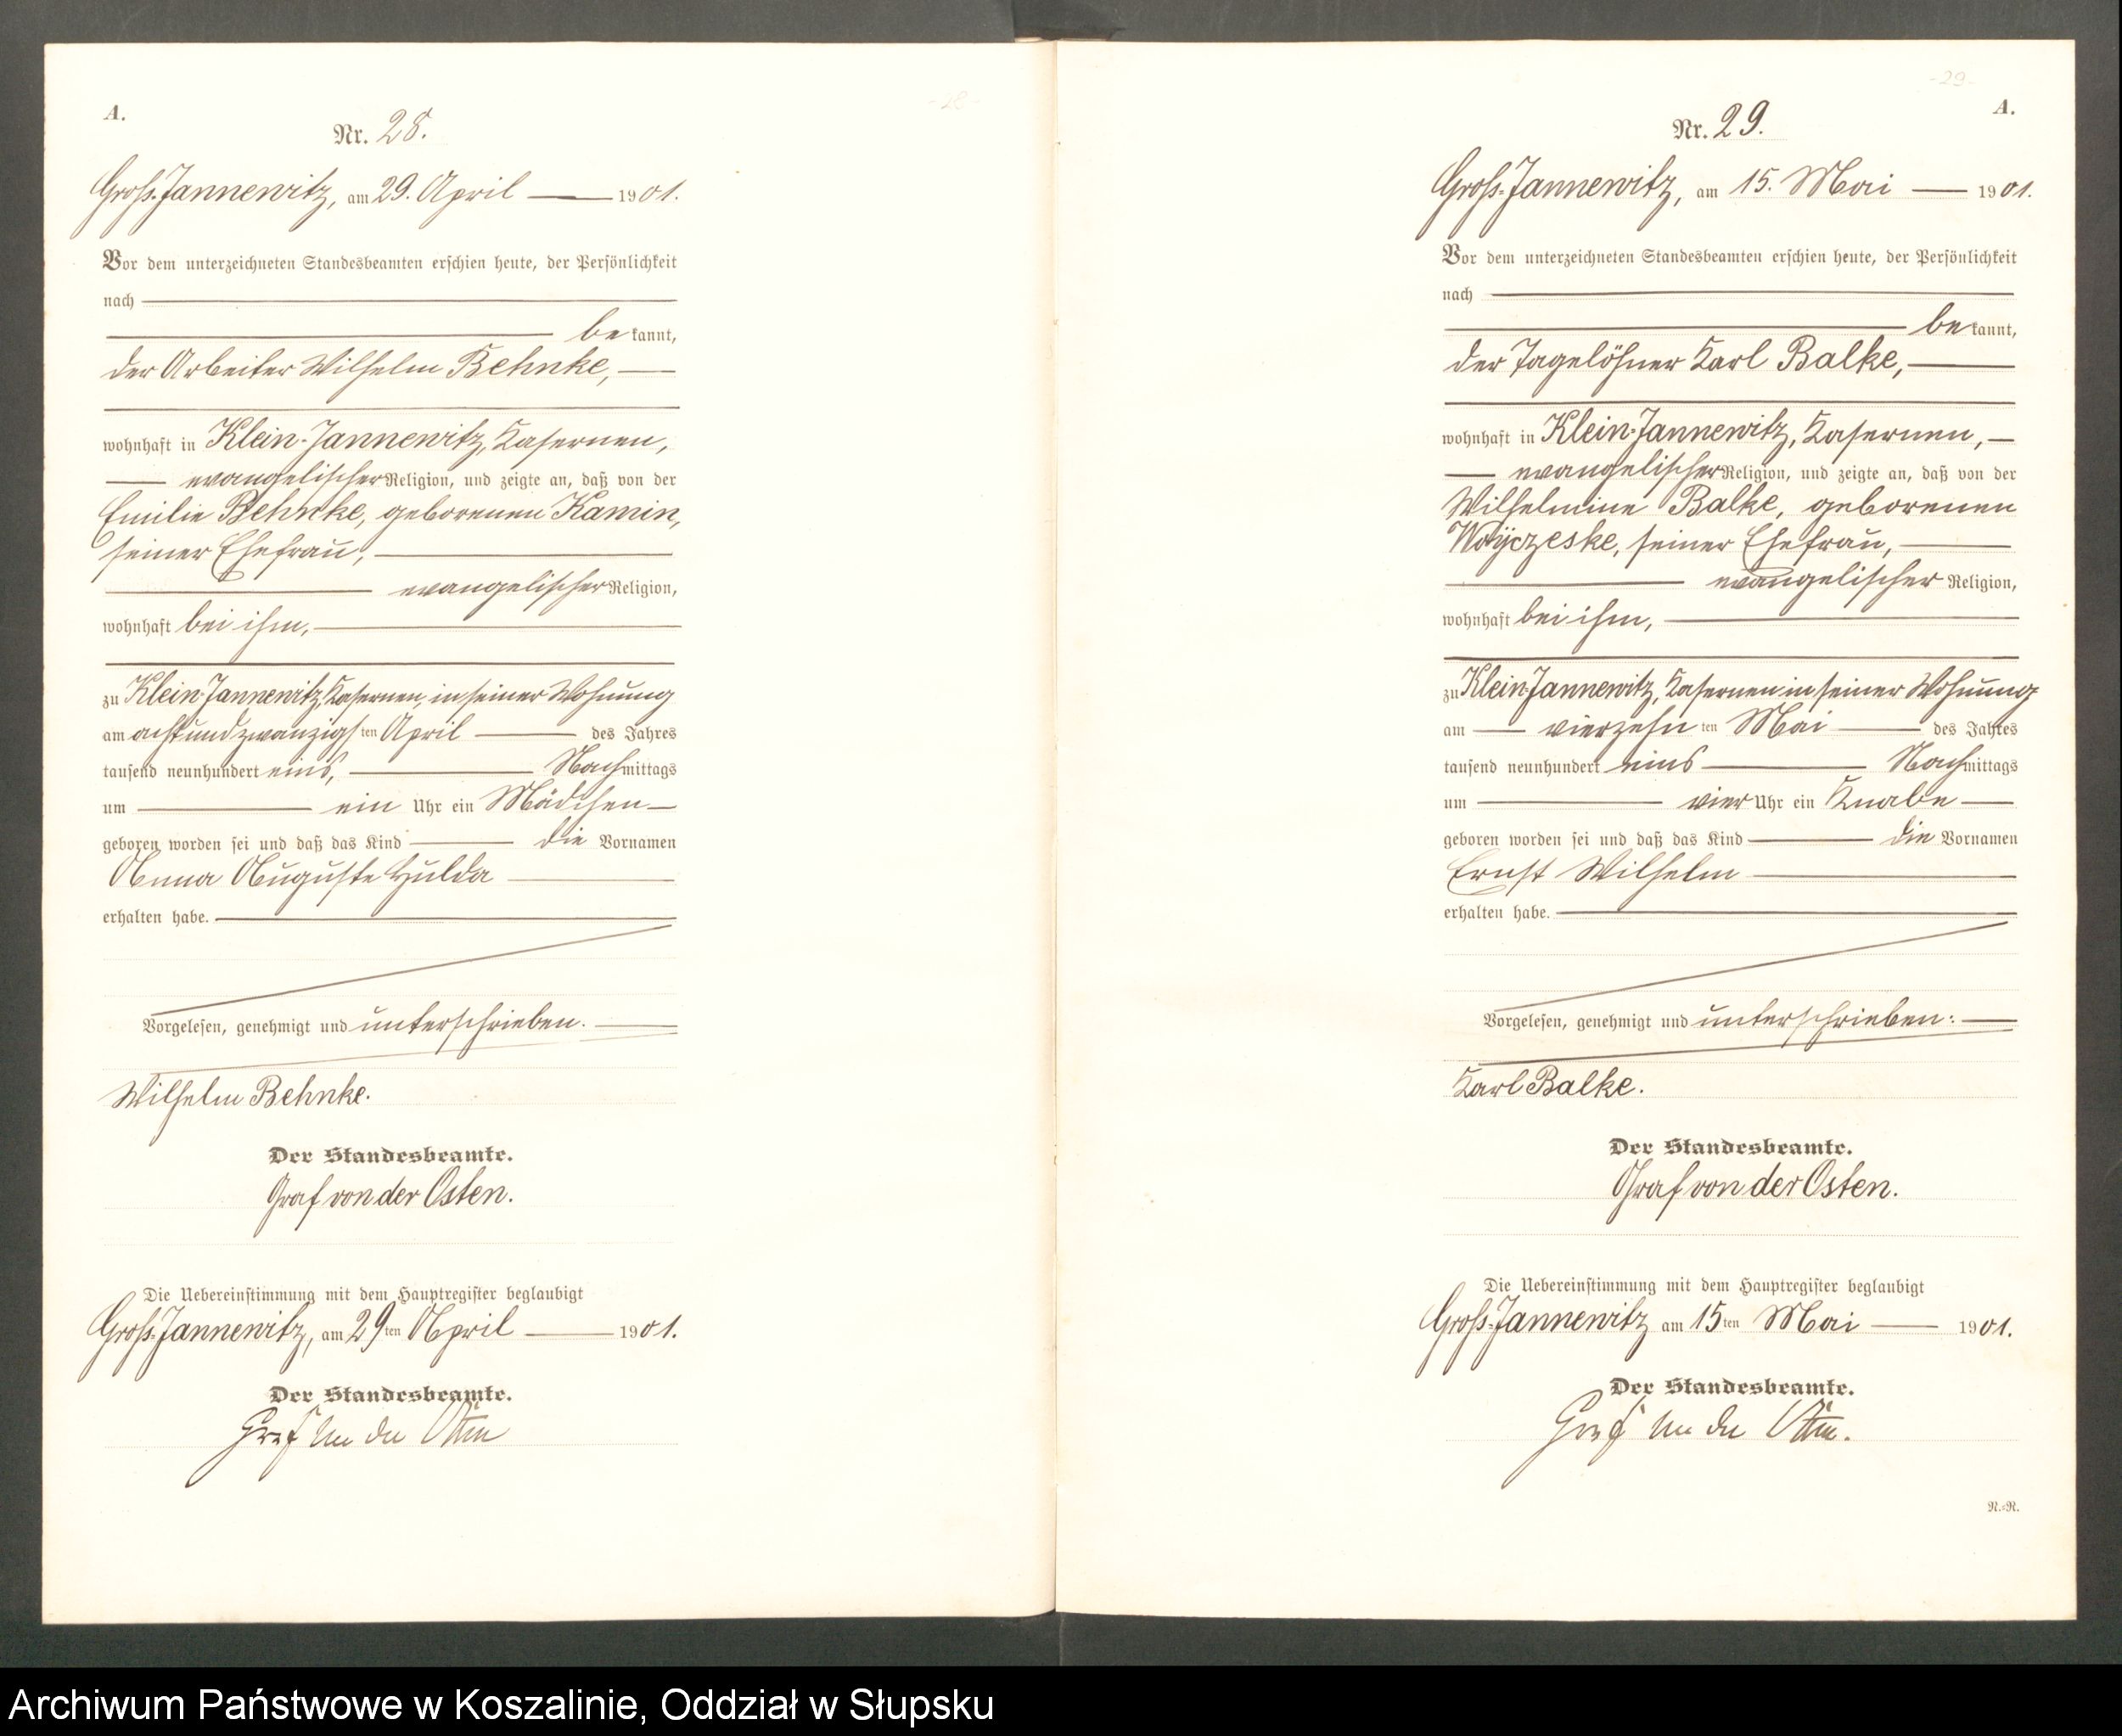 -28-
A.
Nr. 28.
Groß-Jannewitz, am 29. April 1901.
Vor dem unterzeichneten Standesbeamten erschien heute, der Persönlichkeit
nach
bekannt,
der Arbeiter Wilhelm Behnke,
wohnhaft in Klein-Jannewitz, Kasernen,
evangelischer Religion, und zeigte an, daß von der
Emilie Behnke, geborenen Kamin,
seiner Ehefrau,
evangelischer Religion,
wohnhaft bei ihm,
zu Klein-Jannewitz, Kasernen, in seiner Wohnung
am achtundzwanzigsten April des Jahres
tausend neunhundert eins, Nachmittags
um ein Uhr ein Mädchen
geboren worden sei und daß das Kind die Vornamen
Anna Auguste Hulda
erhalten habe.
Vorgelesen, genehmigt und unterschrieben.
Wilhelm Behnke.
Der Standesbeamte.
Graf von der Osten.
Die Uebereinstimmung mit dem Hauptregister beglaubigt
Groß-Jannewitz, am 29ten April 1901.
Der Standesbeamte.
Graf von der Osten
-29-
A.
Nr. 29.
Groß-Jannewitz, am 15. Mai 1901.
Vor dem unterzeichneten Standesbeamten erschien heute, der Persönlichkeit
nach
bekannt,
der Tagelöhner Karl Balke,
wohnhaft in Klein-Jannewitz, Kasernen,
evangelischer Religion, und zeigte an, daß von der
Wilhelmine Balke, geborenen
Woyczeske, seiner Ehefrau,
evangelischer Religion,
wohnhaft bei ihm,
zu Klein-Jannewitz, Kasernen in seiner Wohnung
am vierzehnten Mai des Jahres
tausend neunhundert eins Nachmittags
um vier Uhr ein Knabe
geboren worden sei und daß das Kind die Vornamen
Ernst Wilhelm
erhalten habe.
Vorgelesen, genehmigt und unterschrieben:
Karl Balke.
Der Standesbeamte.
Graf von der Osten.
Die Uebereinstimmung mit dem Hauptregister beglaubigt
Groß-Jannewitz am 15ten Mai 1901.
Der Standesbeamte.
Graf von der Osten.
N.-R.
Archiwum Państwowe w Koszalinie, Oddział w Słupsku